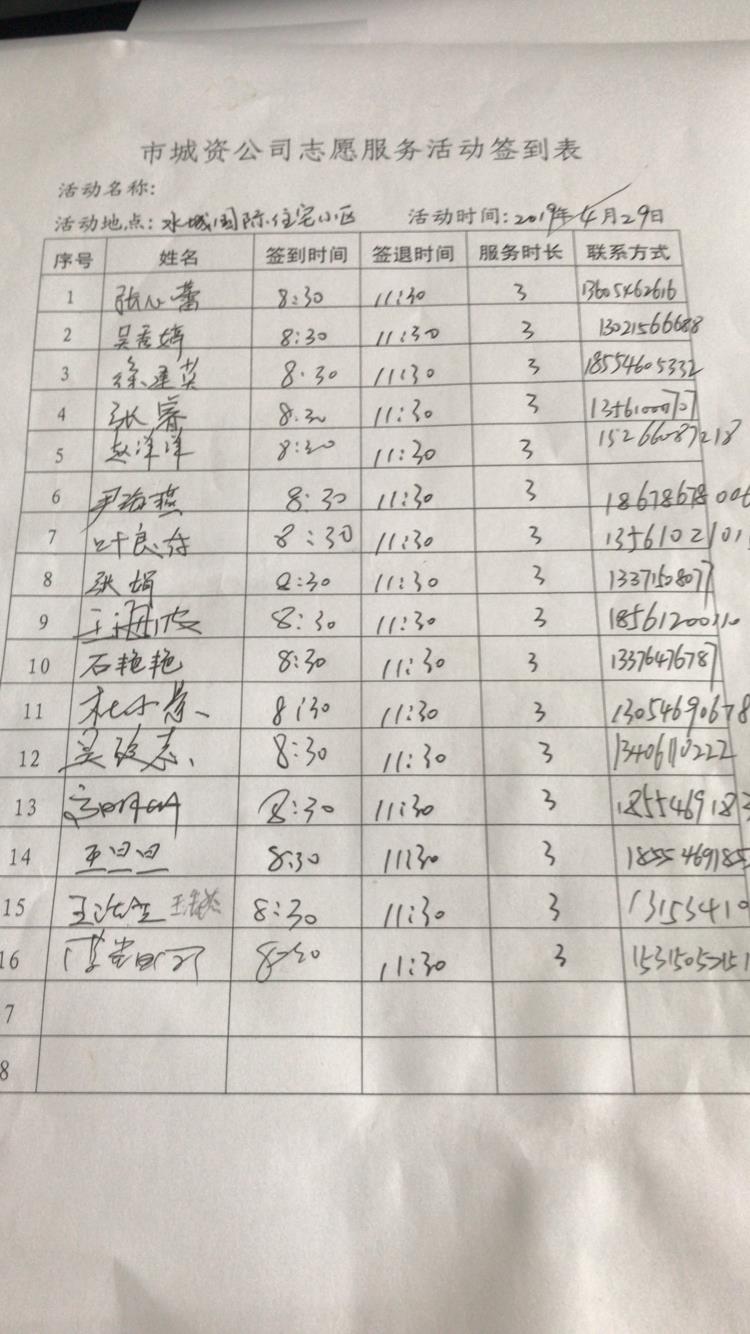 市城资公司志愿服务活动签到表
活动名称:
活动地点:水城国际住宅小区 活动时间:2019年4月29日
序号 姓名 签到时间 签退时间 服务时长 联系方式
1 张心蕾 8:30 11:30 3 13605462616
2 吴秀婷 8:30 11:30 3 13021566688
3 徐建英 8:30 11:30 3 18554605332
4 张睿 8:30 11:30 3
5 赵洋洋 8:30 11:30 3 15266087218
6 尹海燕 8:30 11:30 3 18678678006
7 8:30 11:30 3 1356102101
8 张娟 8:30 11:30 3 13371508077
9 王海波 8:30 11:30 3
10 石艳艳 8:30 11:30 3 13376476787
11 杜小景 8:30 11:30 3 13054690678
12 8:30 11:30 3 13406110222
13 8:30 11:30 3 1855469183
14 王旦旦 8:30 11:30 3 1855469185
15 8:30 11:30 3 13153410
16 8:30 11:30 3
7
8